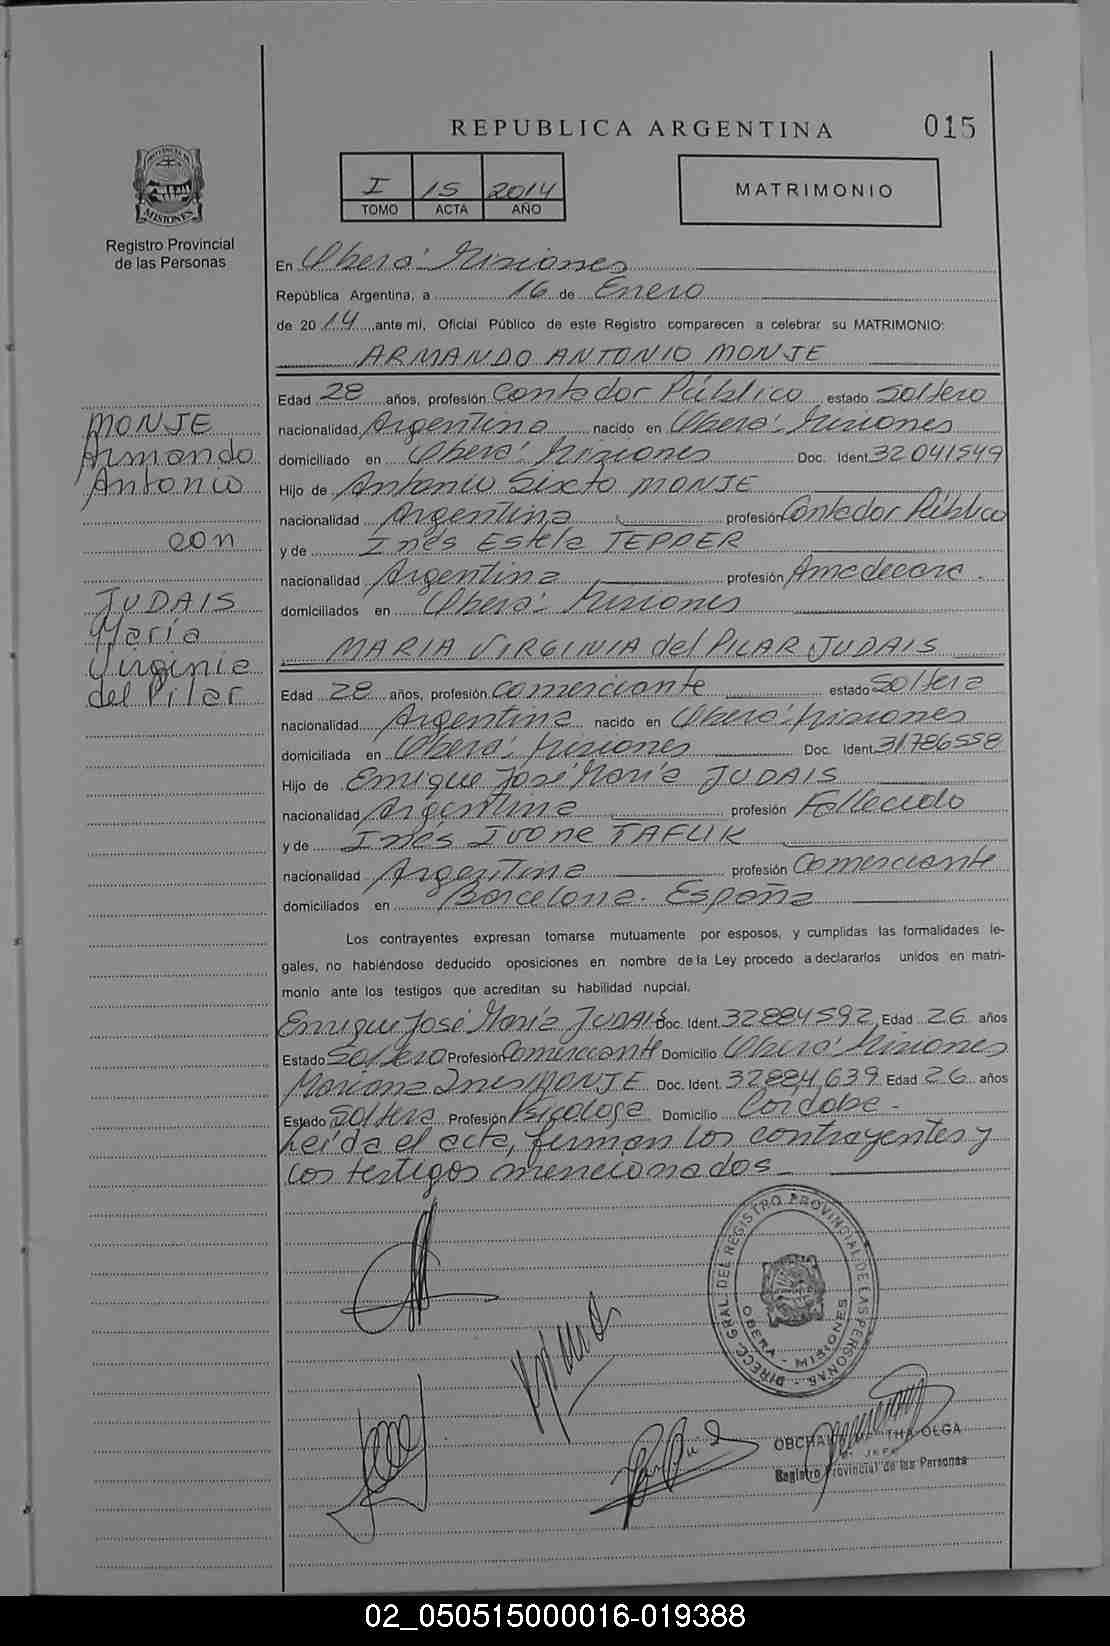 REPUBLICA ARGENTINA
015
PROVINCIA DE
MISIONES
Registro Provincial
de las Personas
I 15 2014
TOMO ACTA AÑO
MATRIMONIO
En Oberá Misiones
República Argentina, a 16 de Enero
de 2014, ante mi, Oficial Público de este Registro comparecen a celebrar su MATRIMONIO:
ARMANDO ANTONIO MONJE
Edad 28 años, profesión Contador Público estado Soltero
nacionalidad Argentina nacido en Oberá Misiones
domiciliado en Oberá Misiones Doc. Ident 32041549
Hijo de Antonio Sixto MONJE
nacionalidad Argentina profesión Contador Público
y de Inés Estela TEPPER
nacionalidad Argentina profesión Ama de casa.
domiciliados en Oberá Misiones
MARIA VIRGINIA del PILAR JUDAIS
Edad 28 años, profesión comerciante estado Soltera
nacionalidad Argentina nacido en Oberá Misiones
domiciliada en Oberá Misiones Doc. Ident. 31786558
Hijo de Enrique José María JUDAIS
nacionalidad Argentina profesión Fallecido
y de Inés Ivone TAFLIK
nacionalidad Argentina profesión Comerciante
domiciliados en Barcelona. España
Los contrayentes expresan tomarse mutuamente por esposos, y cumplidas las formalidades le-
gales, no habiéndose deducido oposiciones en nombre de la Ley procedo a declararlos unidos en matri-
monio ante los testigos que acreditan su habilidad nupcial.
Enrique José María JUDAIS Doc. Ident. 32884592 Edad 26 años
Estado Soltero Profesión Comerciante Domicilio Oberá Misiones
Mariana Ines MONJE Doc. Ident. 32884639 Edad 26 años
Estado Soltera Profesión Psicóloga Domicilio Córdoba.
Leída el acta, firman los contrayentes y
los testigos mencionados
MONJE
Armando
Antonio
con
JUDAIS
María
Virginia
del Pilar
DIRECC. GRAL. DEL REGISTRO PROVINCIAL DE LAS PERSONAS
OBERA - MISIONES
OLGA
JEFE
Registro Provincial de las Personas
02_050515000016-019388